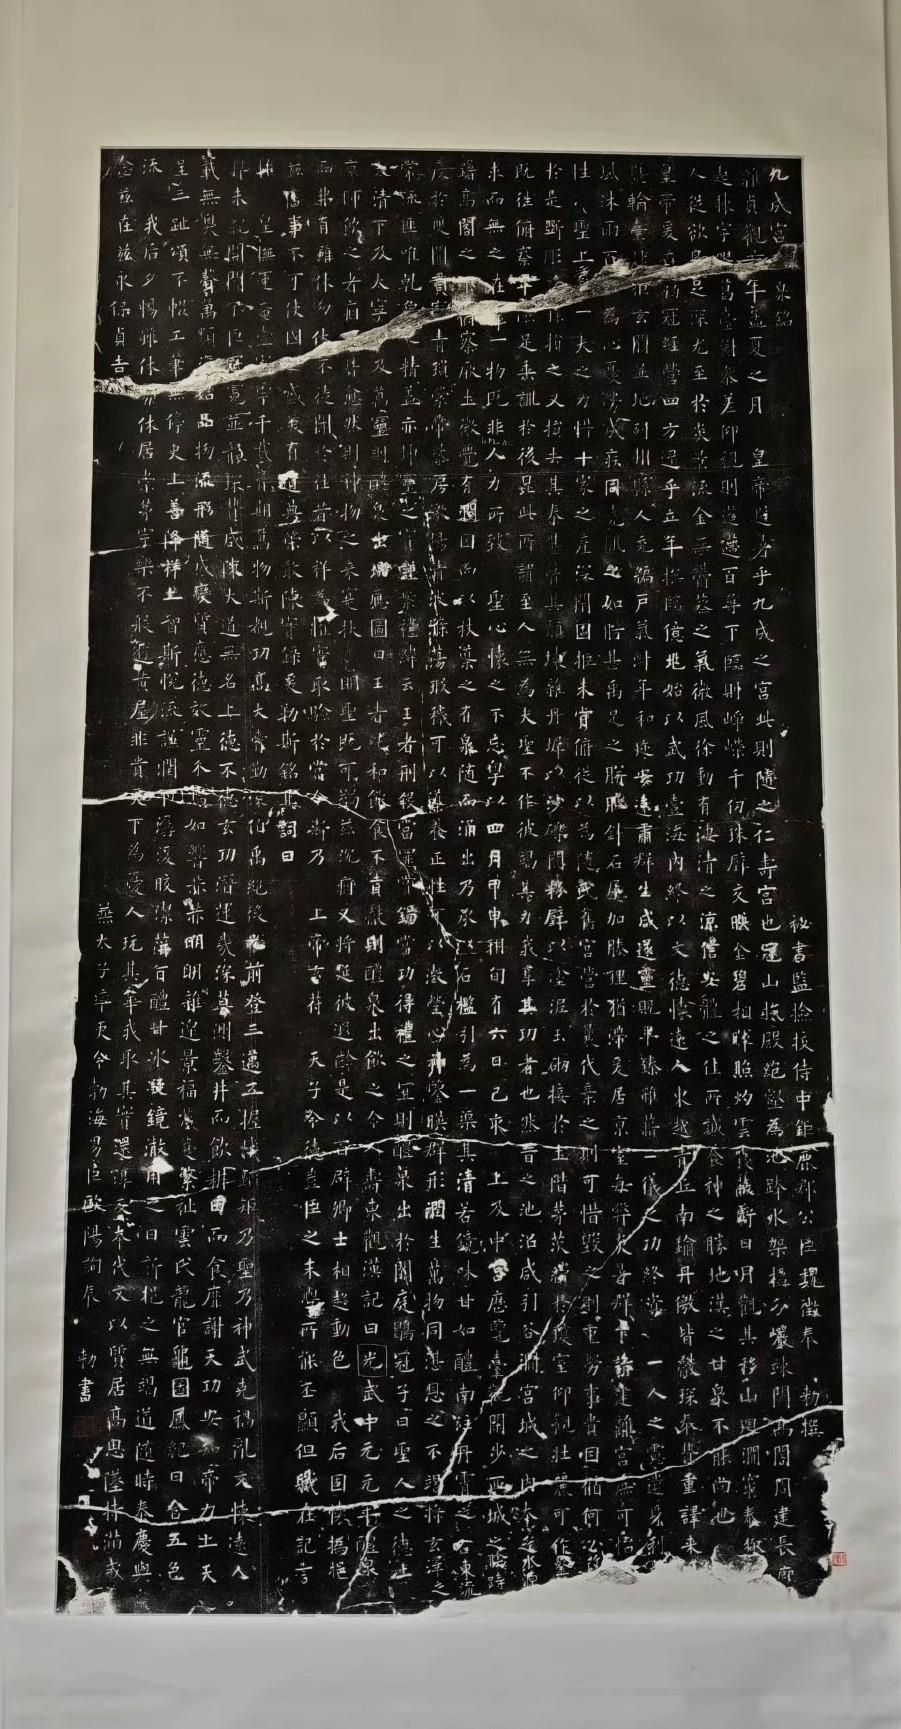 九成宮泉銘 秘書監檢校侍中鉅鹿郡公臣魏徵奉 勑撰
維貞觀六年孟夏之月 皇帝避暑乎九成之宮此則隨之仁壽宮也冠山抗殿絕壑為池跨水架楹分巖竦闕高閣周建長廊
起棟宇臺榭參差仰視則迢遰百尋下臨則崢嶸千仞珠璧交映金碧相暉照灼雲霞蔽虧日月觀其移山迴澗窮泰極
人從欲良足深尤至於炎景流金無鬱蒸之氣微風徐動有淒清之涼信安體之佳所誠養神之勝地漢之甘泉不能尚也
皇帝爰在弱冠經營四方逮乎立年撫臨億兆始以武功壹海內終以文德懷遠人東越青丘南踰丹徼皆獻琛奉贄重譯來
輪臺北拒玄闕並地列州縣人充編戶氣淑年和迩安遠肅群生咸遂靈貺畢臻雖藉二儀之功終資一人之慮遺身利
風沐雨百為心憂勞成疾同堯肌之如腊甚禹足之胼胝針石屢加腠理猶滯爰居京室每弊炎暑群下請建離宮庶可怡
性 聖上愛一夫之力惜十家之產深閉固拒未肯俯從以為隨氏舊宮營於曩代棄之則可惜毀之則重勞事貴因循何必改
於是斲彫損之又損去其泰甚葺其頹壞雜丹墀以沙礫間粉壁以塗泥玉砌接於土階茅茨續於瓊室仰觀壯麗可作鑒
既往俯察卑儉足垂訓於後昆此所謂至人無為大聖不作彼竭其力我享其功者也然昔之池沼咸引谷澗宮城之內本乏水源
求而無之在乎一物既非人力所致 聖心懷之不忘粵以四月甲申朔旬有六日己亥 上及中宮歷覽臺觀閑步西城之陰躊
躇高閣之下俯察厥土微覺有潤因而以杖導之有泉隨而涌出乃承以石檻引為一渠其清若鏡味甘如醴南注丹霄之右東流
度於雙闕貫穿青瑣縈帶紫房激揚清波滌蕩瑕穢可以導養正性可以澂瑩心神鑒暎群形潤生萬物同湛恩之不竭將玄澤之
常流匪唯乾象之精蓋亦坤靈之寶謹案禮緯云王者刑殺當罪賞錫當功得禮之宜則醴泉出於闕庭鶡冠子曰聖人之德上
太清下及太寧中及萬靈則醴泉出瑞應圖曰王者純和飲食不貢獻則醴泉出飲之令人壽東觀漢記曰光武中元元年醴泉
京師飲之者痼疾皆愈然則神物之來寔扶明聖既可蠲茲沉痼又將延彼遐齡是以百辟卿士相趨動色 我后固懷撝挹
而弗有雖休勿休不徒聞於往昔以祥為懼實取驗於當今斯乃 上帝玄符 天子令德豈臣之末學所能丕顯但職在記言
茲書事不可使國之盛美有遺典策敢陳實錄爰勒斯銘其詞曰
惟皇撫運奄壹寰宇千載膺期萬物斯覩功高大舜勤深伯禹絕後光前登三邁五握機蹈矩乃聖乃神武克禍亂文懷遠人
未紀開闢不臣冠冕並襲琛贄咸陳大道無名上德不德玄功潛運幾深莫測鑿井而飲耕田而食靡謝天功安知帝力上天
載無臭無聲萬類資始品物流形隨感變質應德效靈介焉如響赫赫明明雜遝景福葳蕤繁祉雲氏龍官龜圖鳳紀日含五色
呈三趾頌不輟工筆無停史上善降祥上智斯悅流謙潤下潺湲皎潔蓱旨醴甘冰凝鏡澈用之日新挹之無竭道隨時泰慶與
流 我后夕惕雖休弗休居崇茅宇樂不般遊黃屋非貴天下為憂人玩其華我取其實還淳反本代文以質居高思墜持滿戒
念茲在茲永保貞吉 兼太子率更令勃海男臣歐陽詢奉 勑書